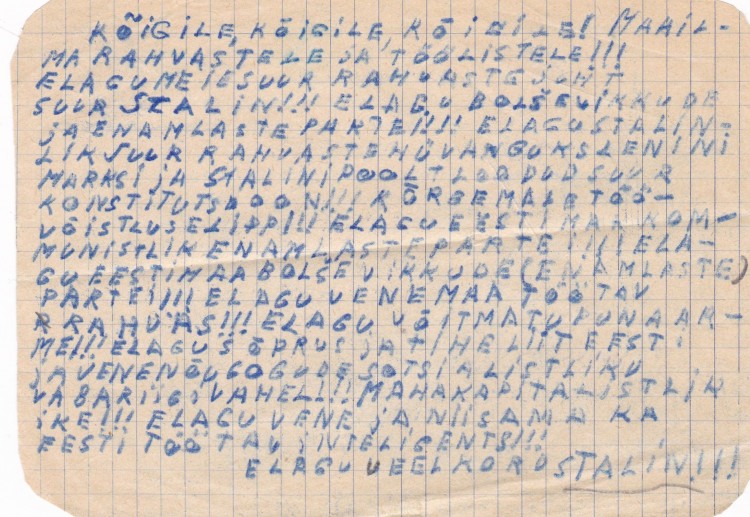 KÕIGILE, KÕIGILE, KÕIGILE! MAAIL-
MA RAHVASTELE JA TÖÖLISTELE!!!
ELAGU MEIE SUUR RAHVASTE JUHT
SUUR STALIN!!! ELAGU BOLŠEVIKKUDE
JA ENAMLASTE PARTEI!!!! ELAGU STALIN-
LIK SUUR RAHVASTE HÜVANGUKS LENINI
MARKSI JA STALINI POOLT LOODUD SUUR
KONSTITUTSIOON!!! KÕRGEMALE TÖÖ-
VÕISTLUSE LIPP!!! ELAGU EESTIMAA KOM-
MUNISTLIK ENAMLASTE PARTEI!!!! ELA-
GU EESTIMAA BOLŠEVIKKUDE (ENAMLASTE)
PARTEI!!!! ELAGU VENEMAA TÖÖTAV
R RAHVAS!!! ELAGU VÕITMATU PUNAAR-
MEE!!! ELAGU SÕPRUS JA TIHE LIIT EESTI
JA VENE NÕUGOGUDE SOTSIALISTLIKU
VABARIIGI VAHEL!!! MAHA KAPITALISTLIK
IKE!!! ELAGU VENE JA NIISAMA KA
EESTI TÖÖTAV INTELIGENTS!!!
ELAGU VEELKORD STALIN!!!